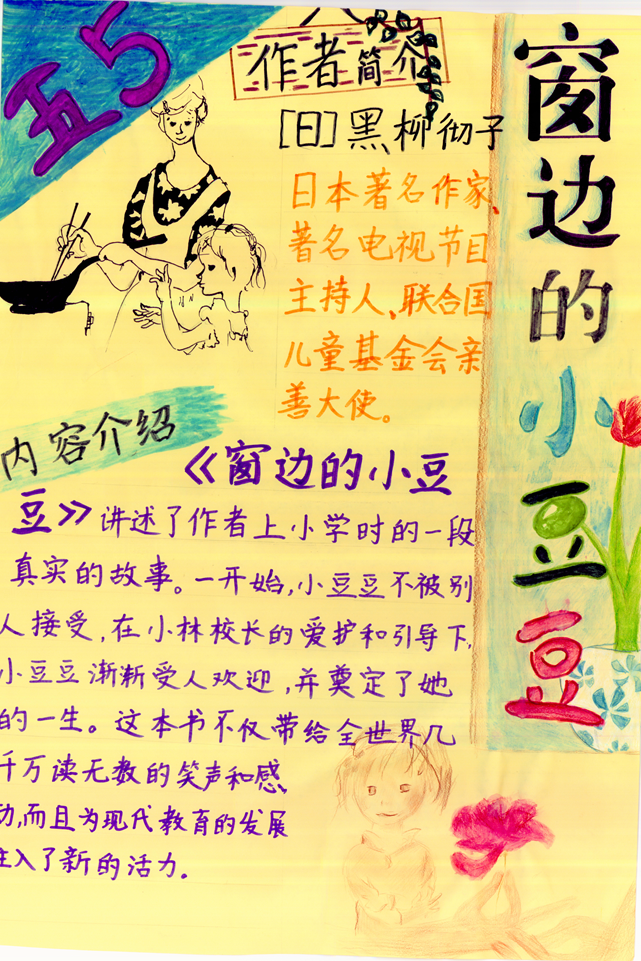 五5
作者简介
[日]黑柳彻子
日本著名作家、
著名电视节目
主持人、联合国
儿童基金会亲
善大使。
窗边的小豆豆
内容介绍
《窗边的小豆
豆》讲述了作者上小学时的一段
真实的故事。一开始,小豆豆不被别
人接受,在小林校长的爱护和引导下,
小豆豆渐渐受人欢迎,并奠定了她
的一生。这本书不仅带给全世界几
千万读无数的笑声和感
动,而且为现代教育的发展
注入了新的活力。